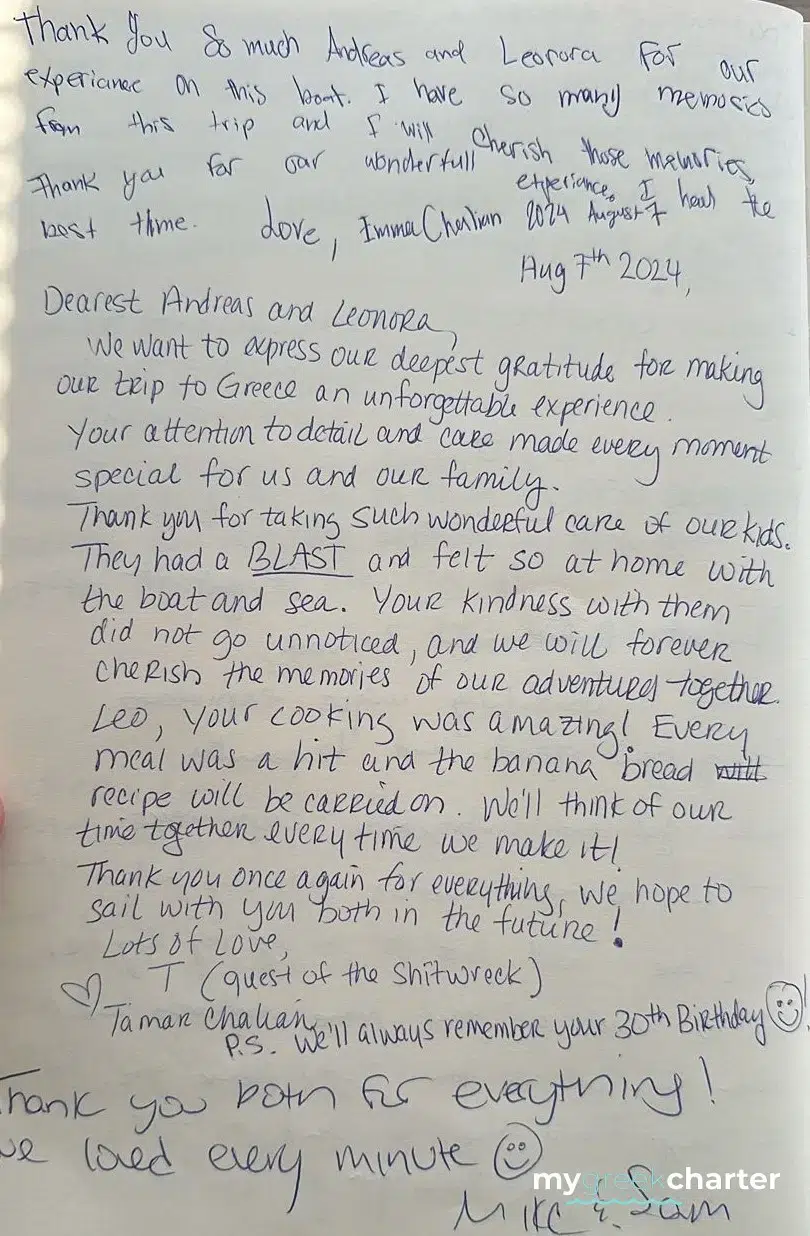 Thank you so much Andreas and Leonora for our
experiance on this boat. I have so many memories
from this trip and I will cherish those memories,
Thank you for our wonderfull experiance. I head the
best thime. Love, Imma Chalian 2024 August 7
Aug 7th 2024,
Dearest Andreas and Leonora,
We want to express our deepest gratitude for making
our trip to Greece an unforgettable experience.
Your attention to detail and care made every moment
special for us and our family.
Thank you for taking such wonderful care of our kids.
They had a BLAST and felt so at home with
the boat and sea. Your kindness with them
did not go unnoticed, and we will forever
cherish the memories of our adventures together.
Leo, your cooking was amazing! Every
meal was a hit and the banana bread will
recipe will be carried on. We'll think of our
time together every time we make it!
Thank you once again for everything, we hope to
sail with you both in the future!
Lots of Love,
T (quest of the Shitwreck)
Tamar Chalian
P.S. We'll always remember your 30th Birthday !
Thank you both for everything!
we loved every minute
mygreekcharter
Mike & Sam